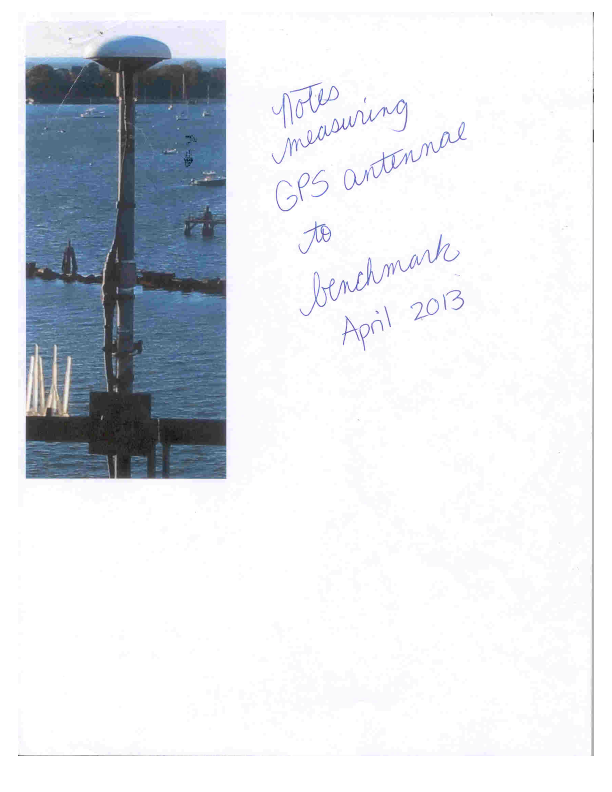 Notes
measuring
GPS antennae
to
benchmark
April 2013